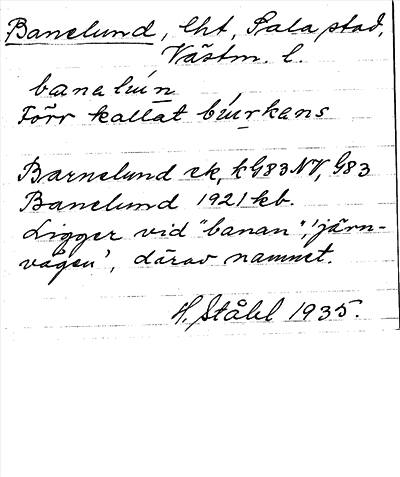 Banelund, lht, Sala stad,
Västm. l.
banalun
Förr kallat burkans
Barnelund ek, kG83NV, G83
Banelund 1921 kb.
Ligger vid "banan", 'järn-
vägen', därav namnet.
H. Ståhl 1935.